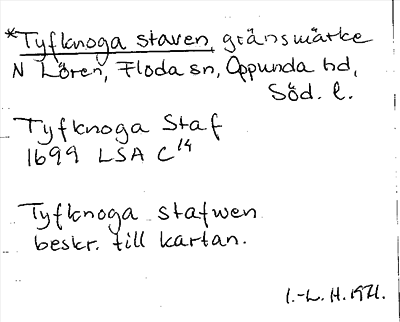 *Tyfknoga staven, gränsmärke
N Lören, Floda sn, Oppunda hd,
Söd. l.
Tyfknoga Staf
1699 LSA C 14
Tyfknoga stafwen
beskr. till kartan.
I.-L. H. 1971.